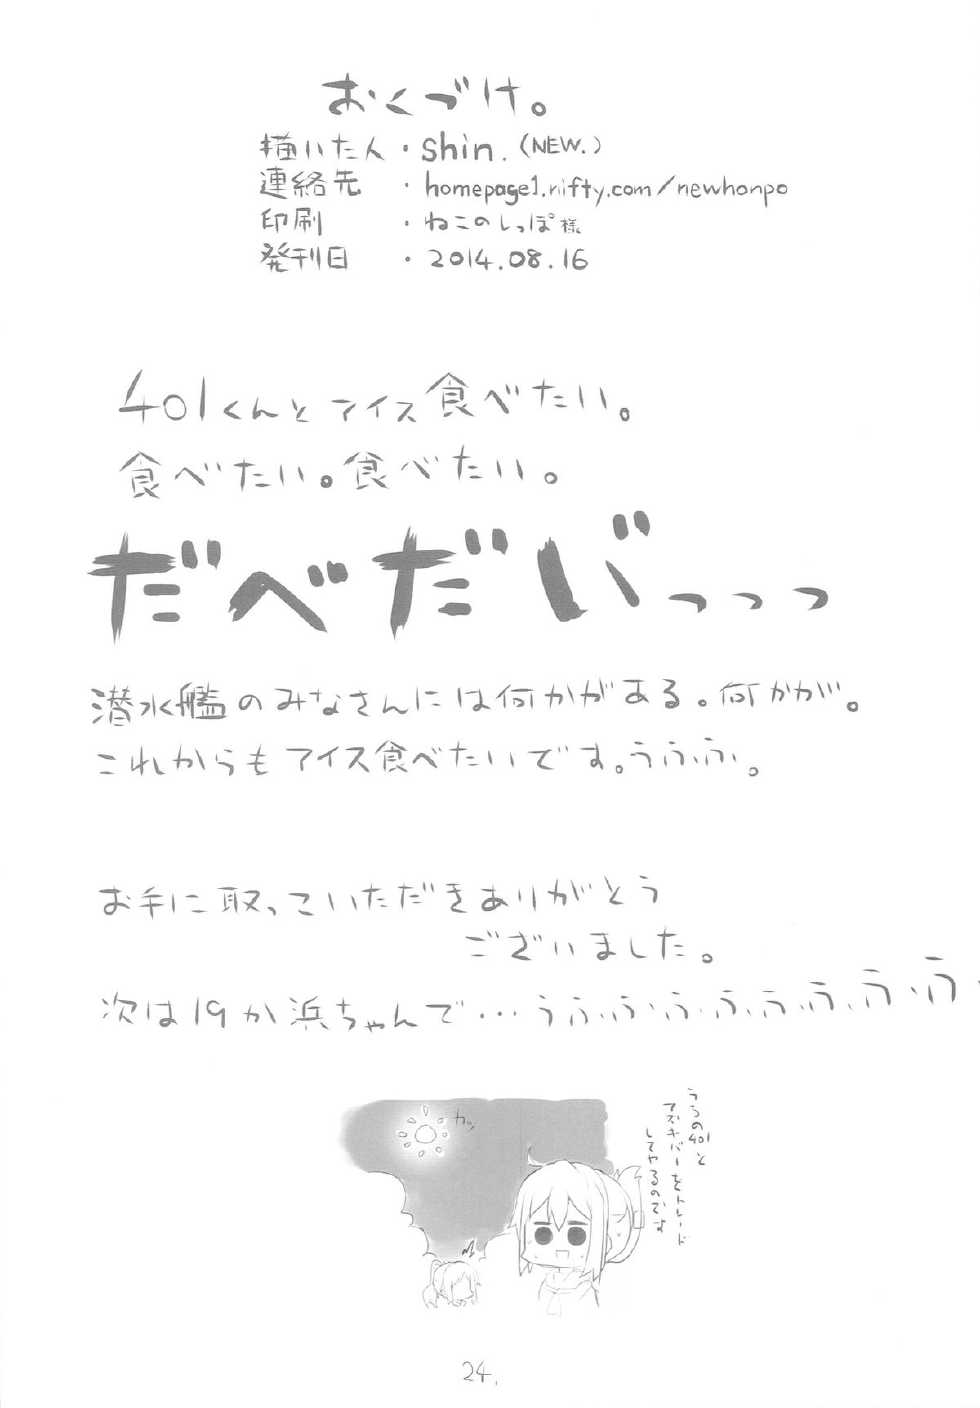 おくづけ。
描いた人・shin.(NEW.)
連絡先・homepage1.nifty.com/newhonpo
印刷・ねこのしっぽ様
発刊日・2014.08.16
401くんとアイス食べたい。
食べたい。食べたい。
だべだい゛っっっ
潜水艦のみなさんには何かがある。何かが。
これからもアイス食べたいです。うふふ。
お手に取っていただきありがとう
ございました。
次は19か浜ちゃんで…うふふ・ふ・ふ・う・う・う・う
カッ
うちの401と
アズキバーをトレード
してやるのです
24.